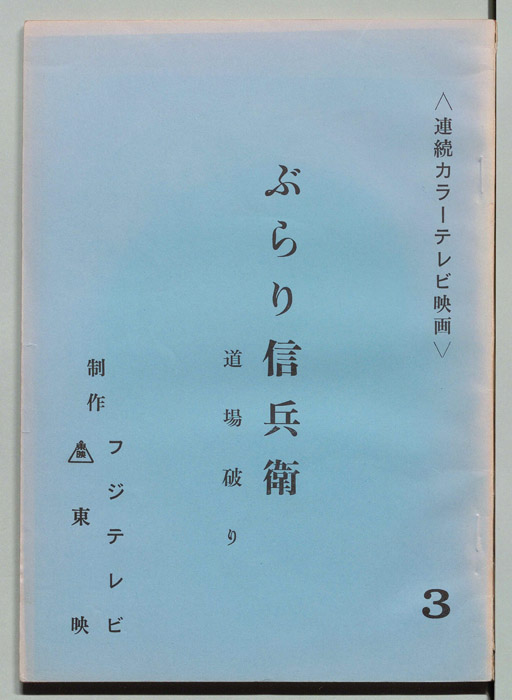 〈連続カラーテレビ映画〉
ぶらり信兵衛
道場破り
制作
フジテレビ
東映
東映
3